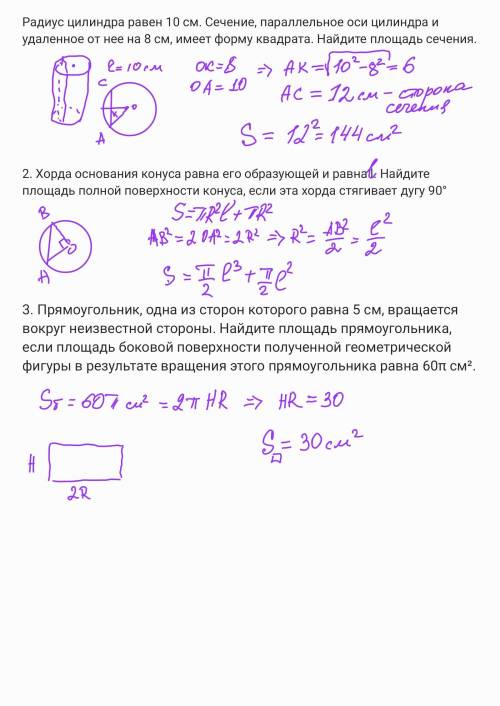 Радиус цилиндра равен 10 см. Сечение, параллельное оси цилиндра и
удаленное от нее на 8 см, имеет форму квадрата. Найдите площадь сечения.
r = 10 см
OK = 8 ⇒ AK = √10² - 8² = 6
OA = 10
AC = 12 см - сторона
сечения
C
K
O
A
S = 12² = 144 см²
2. Хорда основания конуса равна его образующей и равна l. Найдите
площадь полной поверхности конуса, если эта хорда стягивает дугу 90°
S = πR²l + πR²
B
O
A
AB² = 2OA² = 2R² ⇒ R² = AB²/2 = l²/2
S = π/2 l³ + π/2 l²
3. Прямоугольник, одна из сторон которого равна 5 см, вращается
вокруг неизвестной стороны. Найдите площадь прямоугольника,
если площадь боковой поверхности полученной геометрической
фигуры в результате вращения этого прямоугольника равна 60π см².
Sб = 60π см² = 2π HR ⇒ HR = 30
S□ = 30 см²
H
2R